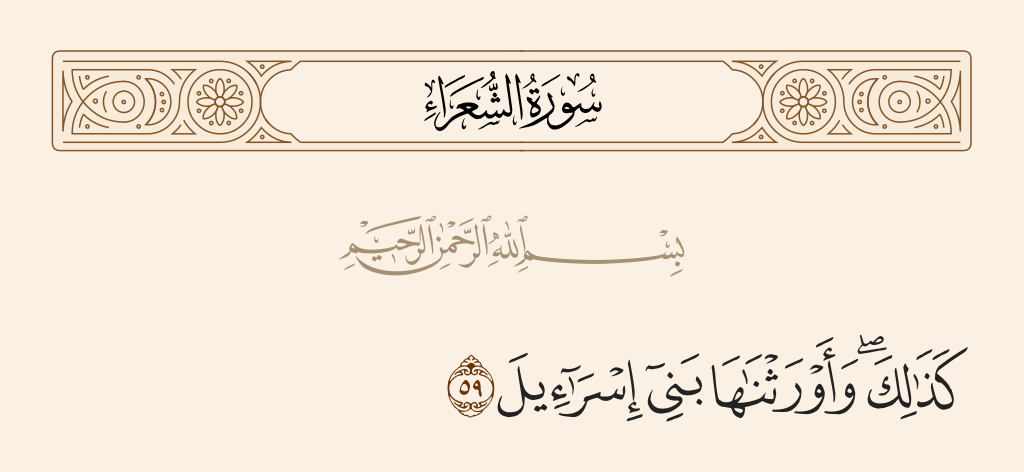 سُورَةُ الشُّعَرَاءِ
بِسْمِ ٱللَّهِ ٱلرَّحْمَٰنِ ٱلرَّحِيمِ
كَذَٰلِكَۖ وَأَوْرَثْنَٰهَا بَنِىٓ إِسْرَٰٓءِيلَ ٥٩